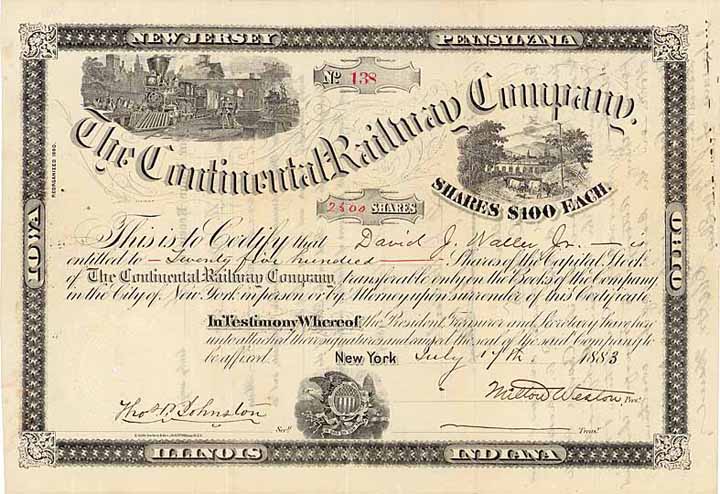 NEW JERSEY
PENNSYLVANIA
No 138
The Continental Railway Company.
REORGANIZED 1880.
SHARES $100 EACH.
2500 SHARES
IOWA
OHIO
This is to Certify that David J. Waller Jr. is
entitled to Twenty five hundred Shares of the Capital Stock
of The Continental Railway Company, transferable only on the Books of the Company
in the City of New York in person or by Attorney upon surrender of this Certificate.
In Testimony Whereof, the President, Treasurer and Secretary have hereunto
attached their signatures and caused the seal of the said Company to
be affixed. New York July 17th 1883
Thos. B. Johnston Sec'y.
Milton Weston, Pres't.
Treas'r.
ILLINOIS
INDIANA